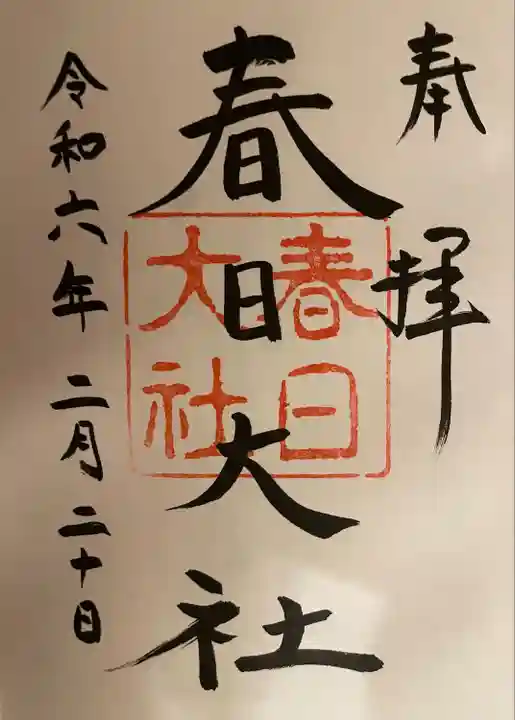 奉拝
春日大社
春日
大社
令和六年二月二十日